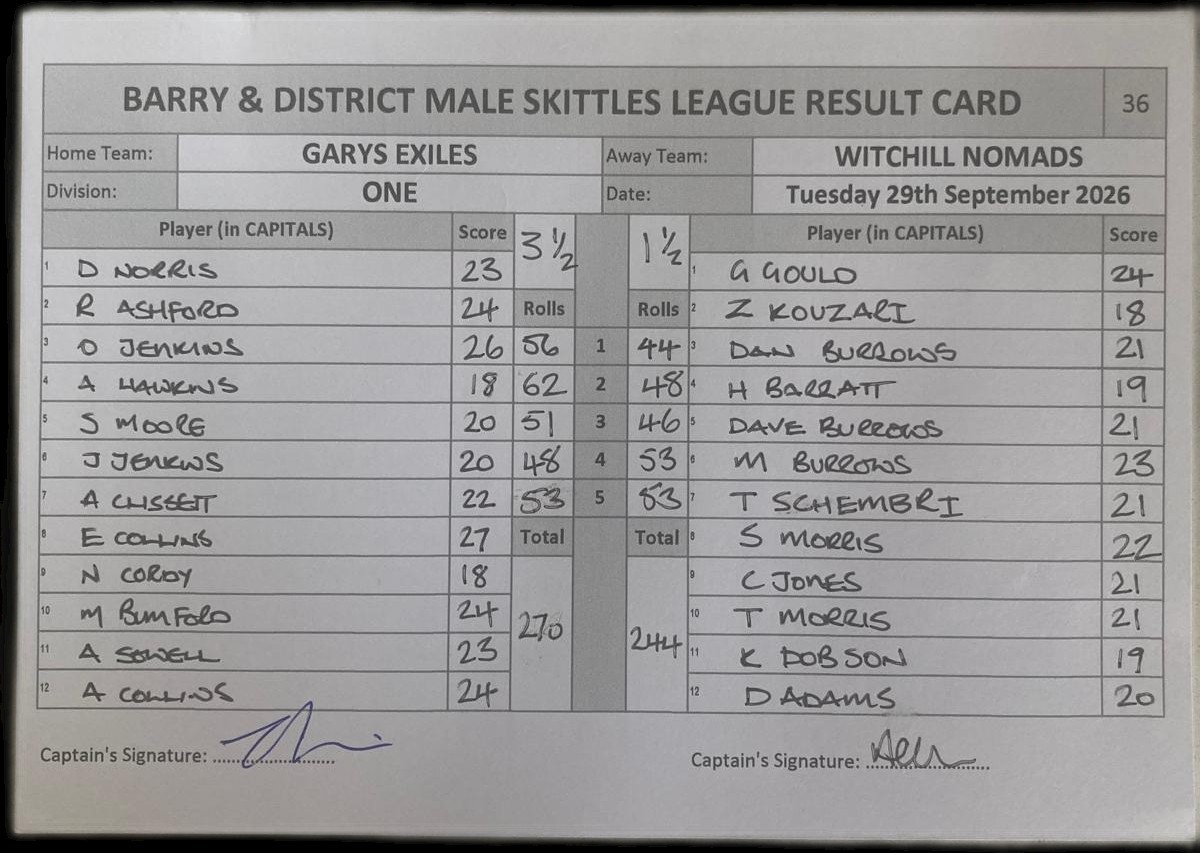 BARRY & DISTRICT MALE SKITTLES LEAGUE RESULT CARD 36
Home Team: GARYS EXILES Away Team: WITCHILL NOMADS
Division: ONE Date: Tuesday 29th September 2026
Player (in CAPITALS) Score 3½ 1½ Player (in CAPITALS) Score
1 D NORRIS 23 1 G GOULD 24
2 R ASHFORD 24 Rolls Rolls 2 Z KOUZARI 18
3 O JENKINS 26 56 1 44 3 DAN BURROWS 21
4 A HAWKINS 18 62 2 48 4 H BARRATT 19
5 S MOORE 20 51 3 46 5 DAVE BURROWS 21
6 J JENKINS 20 48 4 53 6 M BURROWS 23
7 A CLISSETT 22 53 5 53 7 T SCHEMBRI 21
8 E COLLINS 27 Total Total 8 S MORRIS 22
9 N CORDY 18 9 C JONES 21
10 M BUMFORD 24 270 244 10 T MORRIS 21
11 A SEWELL 23 11 K DOBSON 19
12 A COLLINS 24 12 D ADAMS 20
Captain's Signature: Captain's Signature: